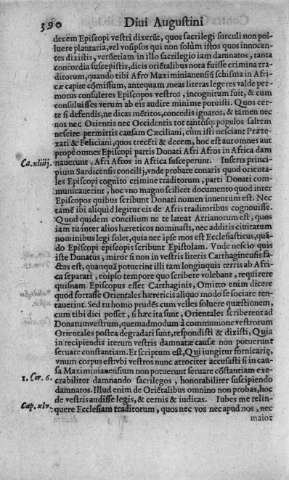 390 Diui Augustini
decem Episcopi vestri dixerūt, quos sacrilegi surculi non polluere
plantaria, vel vosipsos qui non solùm istos quos innocentes
dixistis, versetiam in illo sacrilegio iam damnatos, tanta
concordia suscepistis, dicitis orientalibus nota fuisse crimina traditorum,
quando tibi Afro Maximianēsis schisma in Africæ
capite commissum, antequam meas literas legeres valde permotus
consuleres Episcopos vestros, incognitum fuit, & cum
consuluisses verum ab eis audire minime potuisti. Quos certe
si defendis, ne dicas mētitos, concedis ignaros, & tamen nec
nos nec Orientis nec Occidentis tot tantosq́ populos saltem
nescire permittis causam Cæciliani, cum isti nesciant Prætextati
& Feliciani, quos trecēti & decem, hoc est aut omnes aut
propè omnes Episcopi partis Donati Afri Afros in Africa dam
Ca.xiiij. nauerunt, Afri Afros in Africa susceperunt. Inseris principium
Sardicensis concilij, vnde probare conaris quod orientales
Episcopi cognito crimine traditorum, parti Donati communicauerint,
hoc vno magno scilicet documento quod inter
Episcopos quibus scribunt Donati nomen inuenitur est. Nec
tamē ibi aliquid legitur eis de Afris traditoribus cognouisse.
Quod quidem concilium ne te lateat Arrianorum est, quos
iam tu inter alios hæreticos nominasti, nec additis ciuitatum
nominibus legi solet, quia nec ipse mos est Ecclesiasticus, quādo
Episcopi episcopis scribunt Epistolam. Vnde nescio quis
iste Donatus, nisi
vestris literis Carthaginensis factus
est, quanquā potuerint illi tam longinquis terris ab Africa
separati, eo ipso tempore quo scribere volebant, requirere
quisnam Episcopus esset Carthaginis, Omitto enim dicere
quod fortasse Orientales hæretici aliquo modo se sociare tentauerint.
Sed tu homo prudēs cum velles soluere quæstionem,
cum tibi dici posset, si hæc ita sunt, Orientales scriberent ad
Donatum vestrum, quemadmodum à communione vestrorum
Orientales postea degradari sunt, respondisti & dixisti, Quia
in recipiendis iterum vestris damnatæ causæ non potuerunt
seruare constantiam. Et scriptum est, Qui iungitur fornicariæ,
vnum corpus est. vbi vestros nunc atrociter accusasti si in causa
Maximianensium non potuerunt seruare cōstantiam exe-
1. Cor. 6. crabiliter damnando sacrilegos, honorabiliter suscipiendo
damnatos. Illud enim de Oriētalibus omnino non probas, hoc
de vestris audisse legis, & cernis & iudicas. Iubes me relin-
Cap. xiv. quere Ecclesiam traditorum, quos nec vos nec apud nos, nec
maior